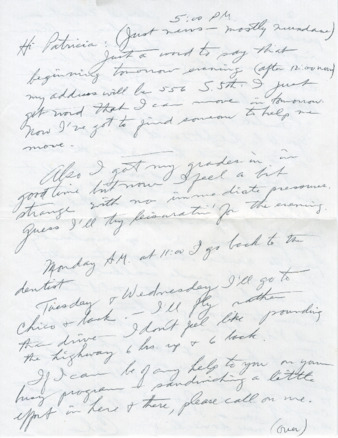 5:00 PM
Hi Patricia: (Just news - mostly nuisance)
Just a word to say that
beginning tomorrow evening (after 12:00 noon)
my address will be 556 S. 5th. I just
got word that I can move in tomorrow
Now I've got to find someone to help me
move.
Also I got my grades in in
good time but now I feel a bit
strange with no immediate pressures.
Guess I'll try for the evening.
Monday A.M. at 11:00 I go back to the
dentist
Tuesday & Wednesday I'll go to
Chico & back. - I'll fly rather
than drive. I don't feel like pounding
the highway 6 hrs. up & 6 back.
If I can be of any help to you on your
busy program - sandwiching a little
effort in here & there, please call on me.
(over)